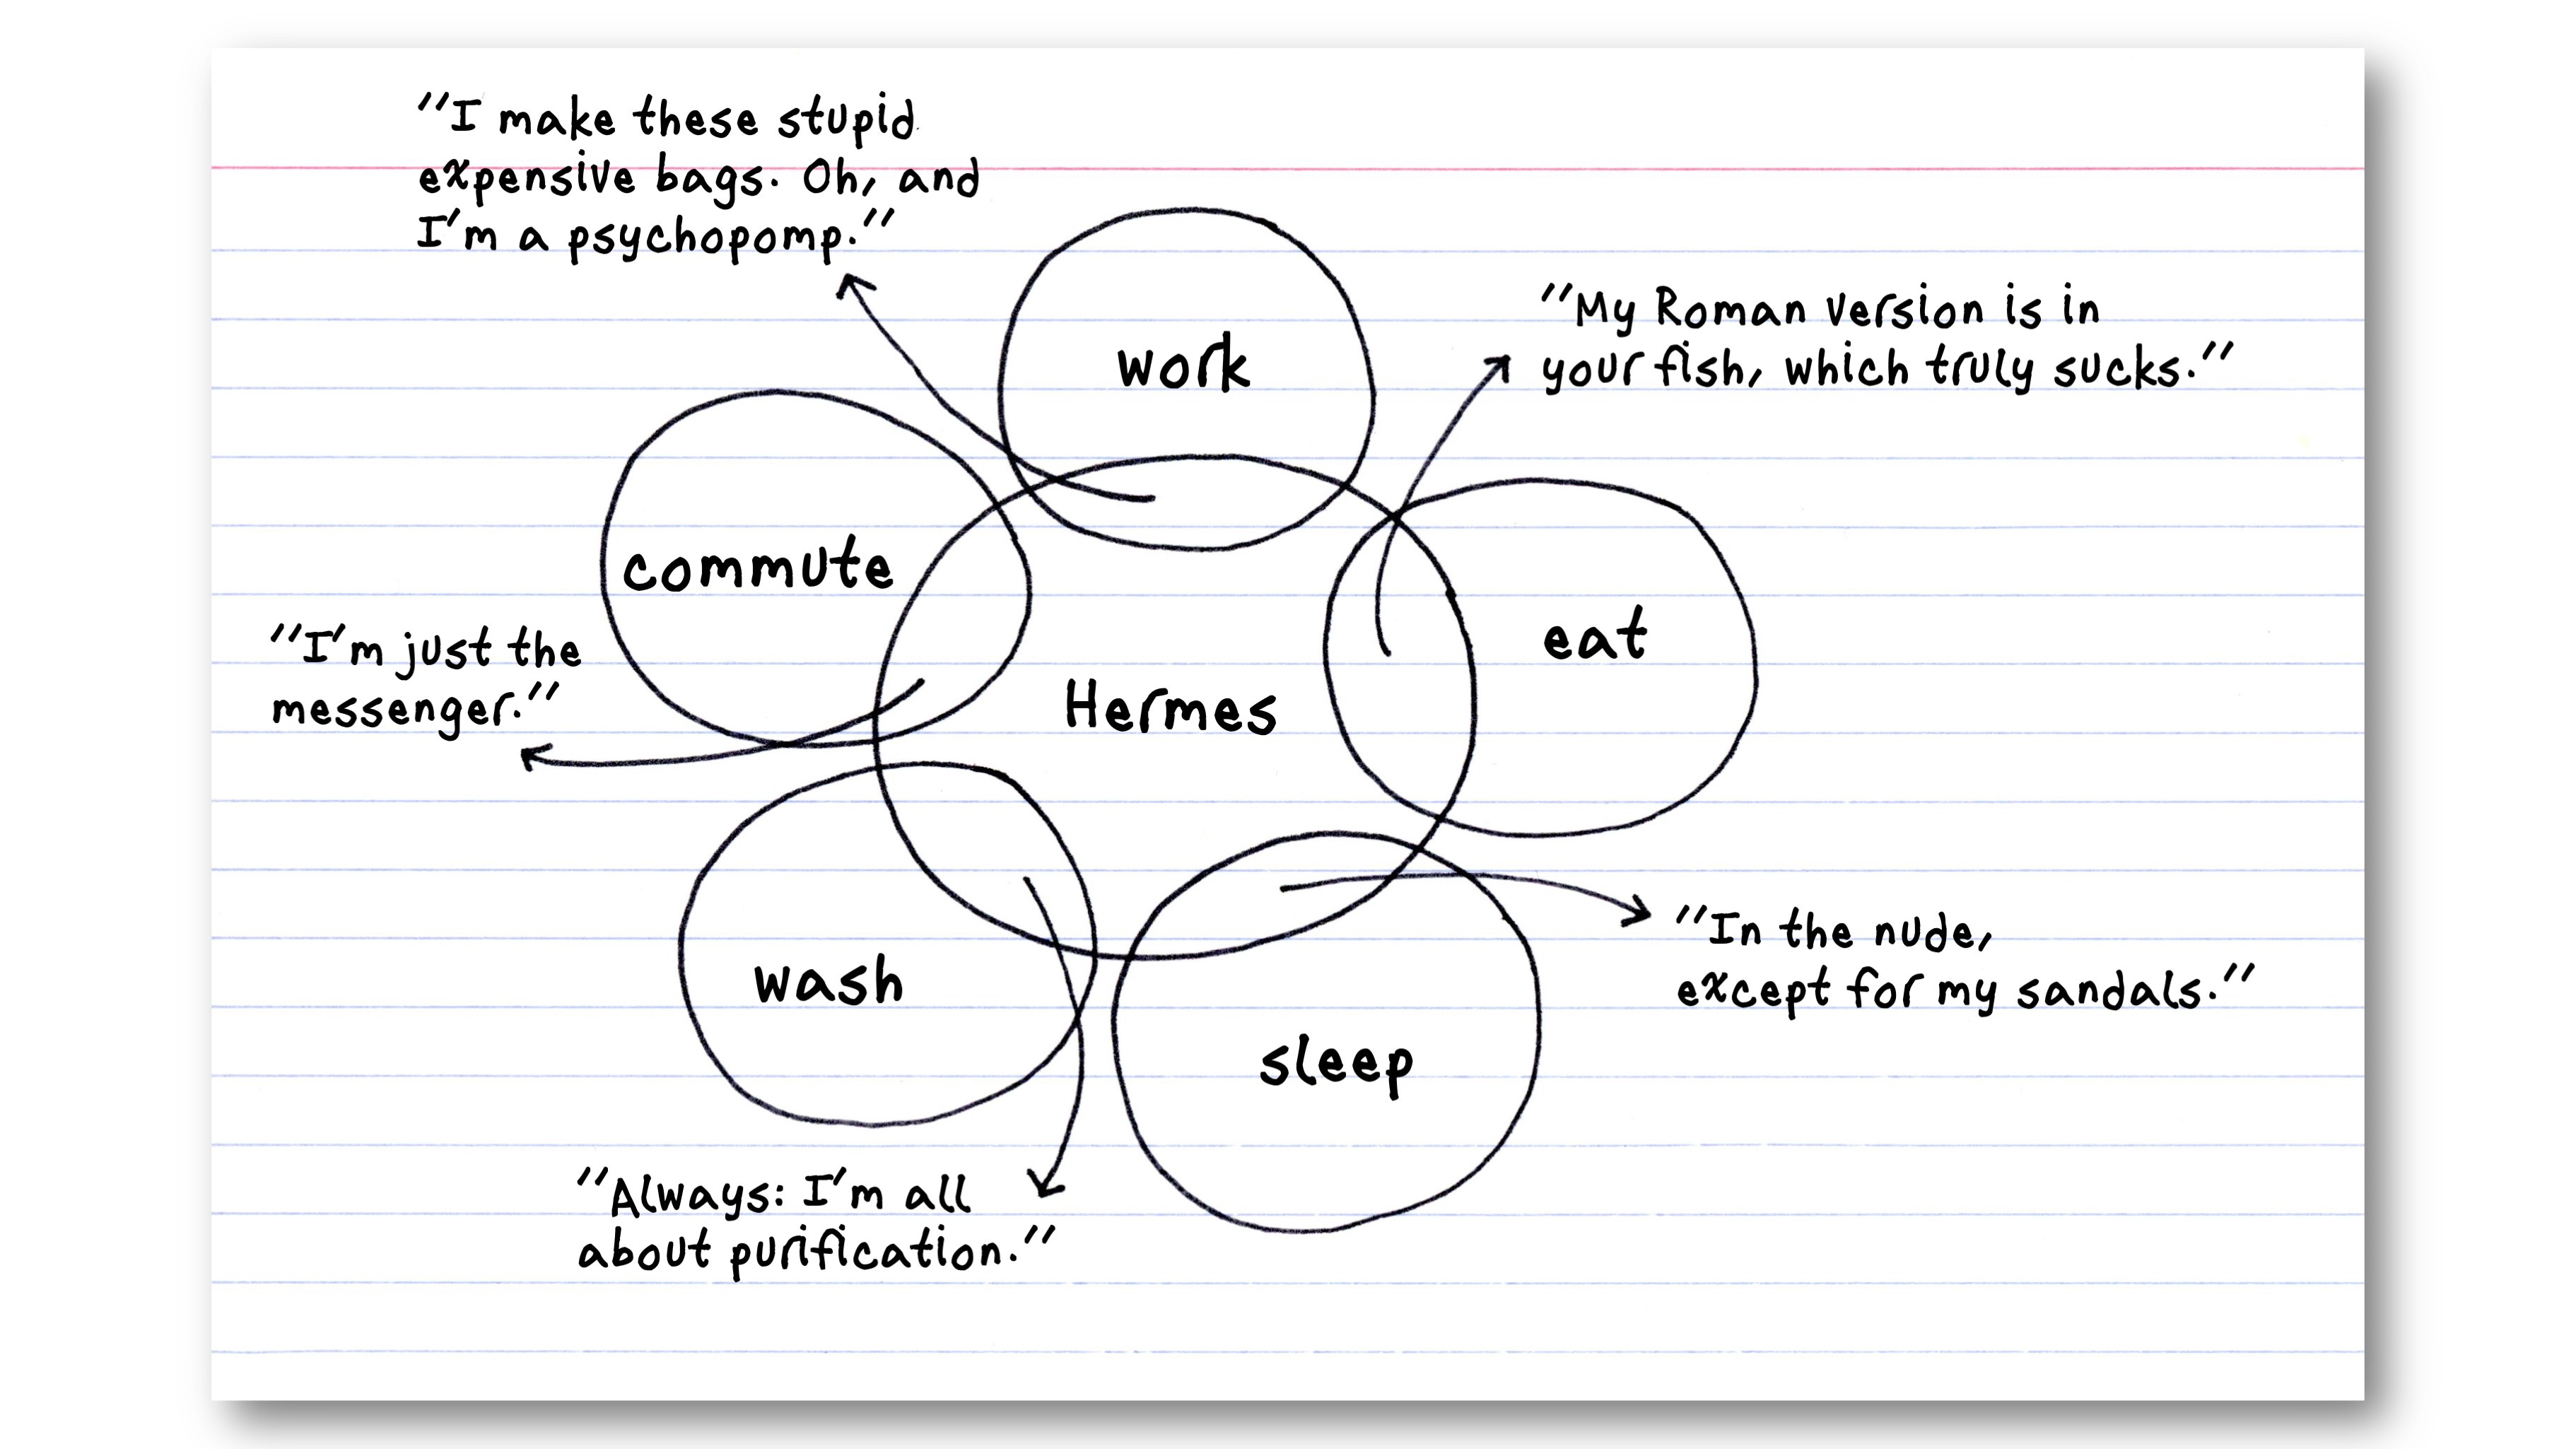 "I make these stupid
expensive bags. Oh, and
I'm a psychopomp."
work
"My Roman version is in
your fish, which truly sucks."
commute
eat
"I'm just the
messenger."
Hermes
"In the nude,
except for my sandals."
wash
sleep
"Always: I'm all
about purification."